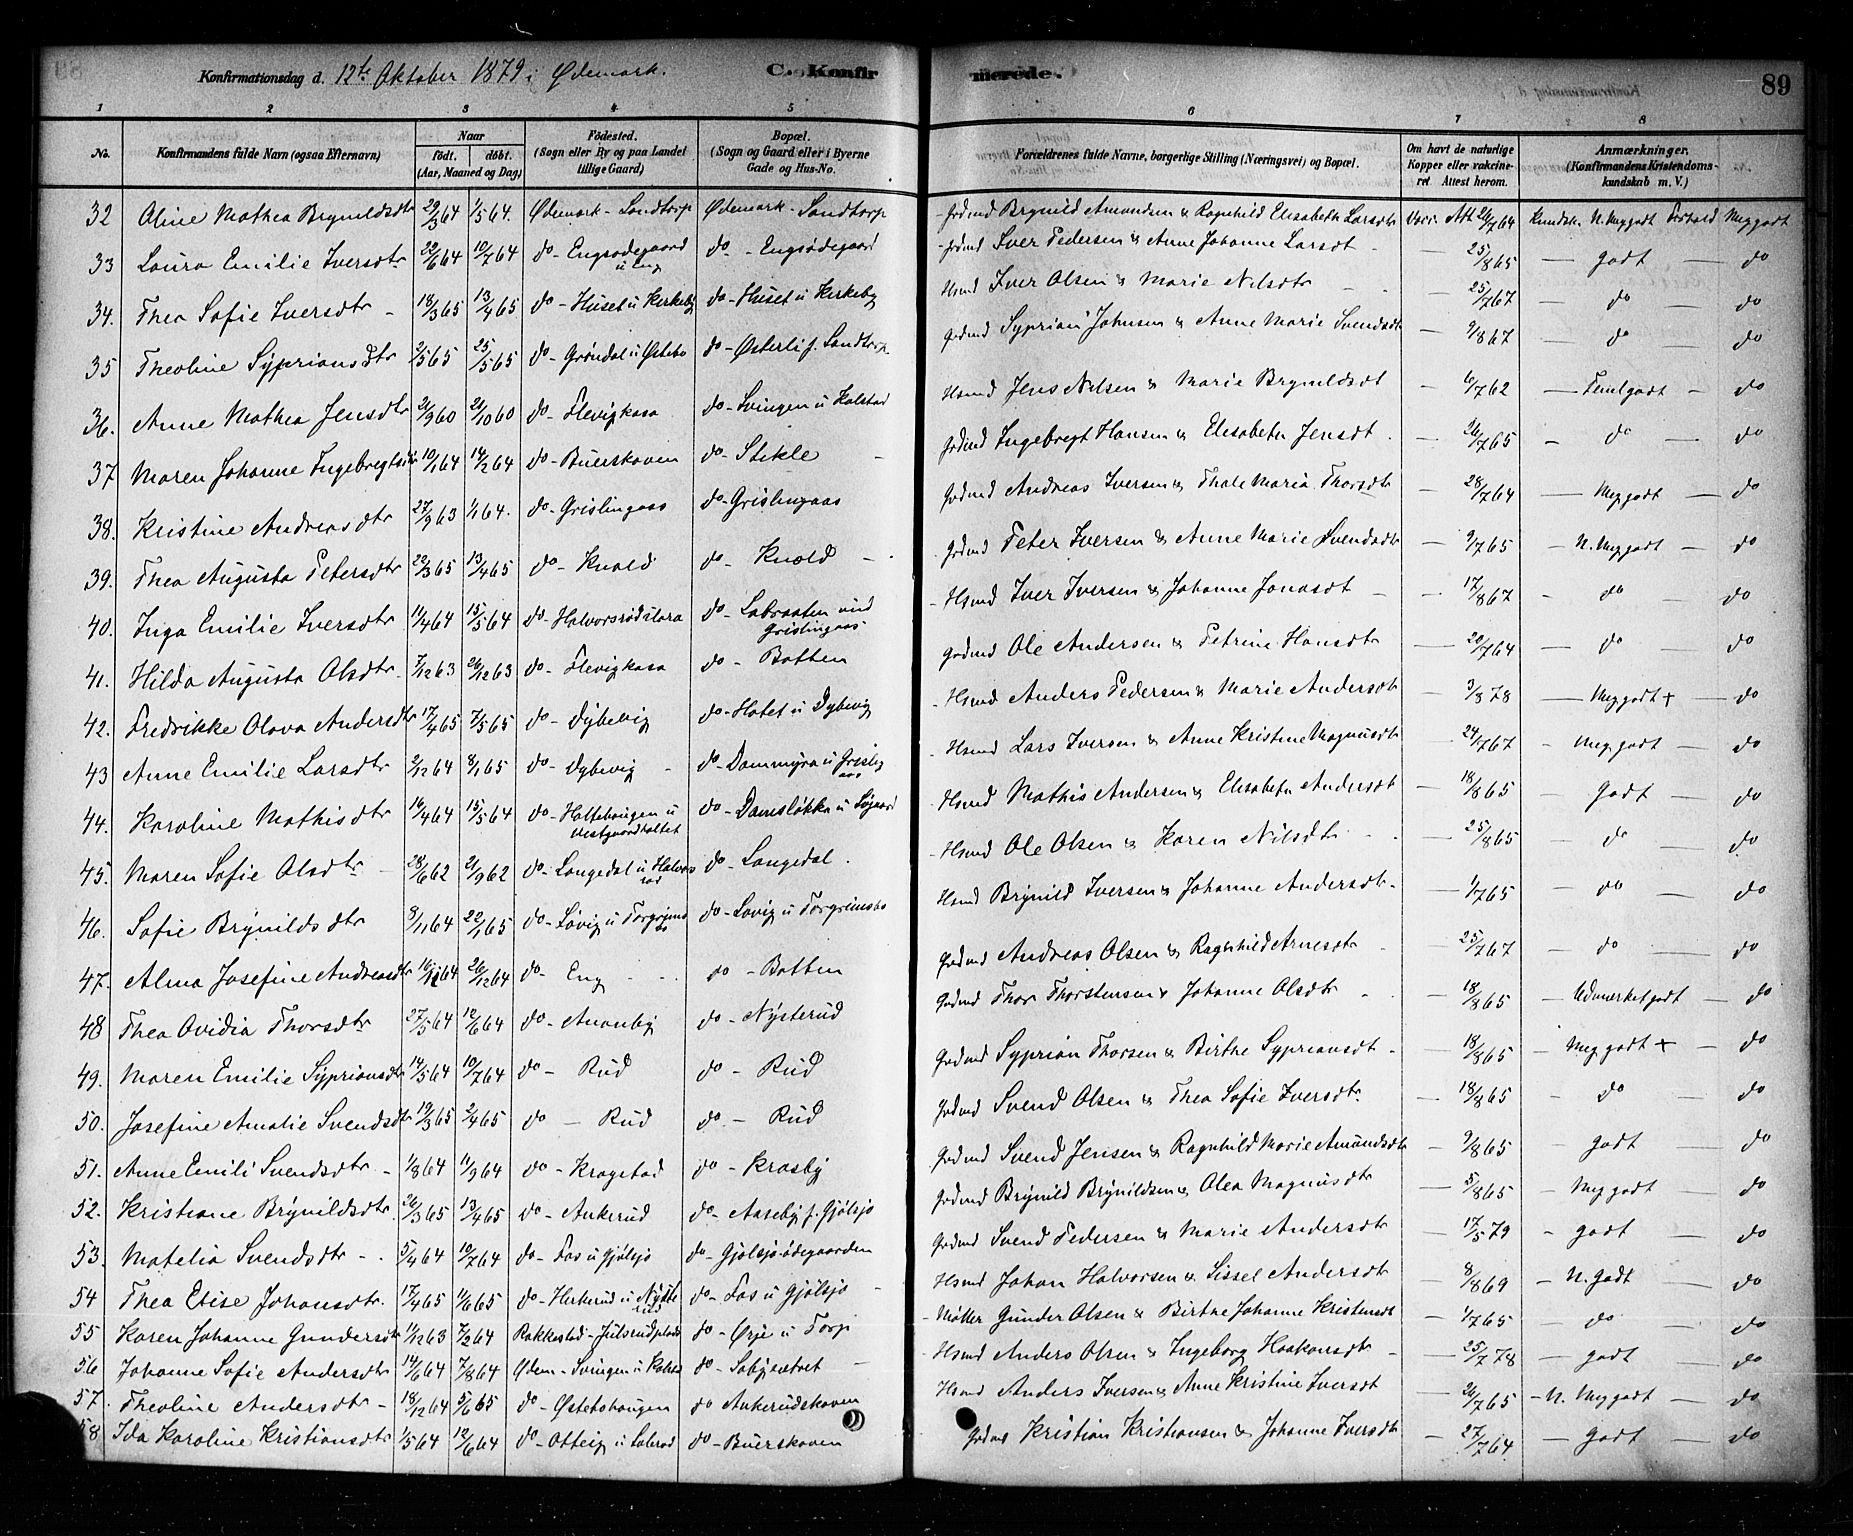 Konfirmationsdag d. 12te Oktober 1879 i Ødemark. C. Konfirmerede. 89
1 2 3 4 5 6 7 8
No. Konfirmandens fulde Navn (ogsaa Efternavn) Naar født. døbt. (Aar, Maaned og Dag) Fødested. (Sogn eller By og paa Landet tillige Gaard) Bopæl. (Sogn og Gaard eller i Byerne Gade og Hus-No. Forældrenes fulde Navne, borgerlige Stilling (Næringsvei) og Bopæl. Om havt de naturlige Kopper eller vakcineret Attest herom. Anmærkninger. (Konfirmandens Kristendomskundskab m. V.)
32 Aline Mathea Brynildsdtr 29/3 64 1/5 64. Ødemark - Sandtorp Ødemark - Sandtorp Grdmd Brynild Amundsen & Ragnhild Elisabeth Larsdtr Vacc. Att 26/7 64 Kundsk. N. Megodt Forhold Meg godt
33 Laura Emilie Iversdtr 22/6 64 10/7 64 do - Engsødegaard u Eng do - Engsødegaard Grdmd Iver Pedersen & Anne Johanne Larsdt - 25/8 65 - godt - do
34. Thea Sofie Iversdtr - 18/3 65 13/4 65 do - Huset u Kirkeby do - Huset u Kirkeby Hsmd Iver Olsen & Marie Nilsdtr - 25/7 67 - do - do
35 Theoline Syprians Dtr 2/5 65 25/5 65 do - Grøndal u Østebø do - Østerli f. Sandtorp Grdmd Syprian Johnsen & Anne Marie Svendsdtr - 9/8 67 - do - do
36. Anne Mathea Jensdtr 2/9 60 21/10 60 do - Flevigkasa do - Svingen u Kolstad Hsmd Jens Nilsen & Marie Brynildsdt - 6/7 62 - Temelgodt - do
37 Maren Johanne Ingebregtsdtr 10/1 64 14/2 64 do - Buerskoven do - Stikle - Grdmd Ingebregt Hansen & Elisabeth Jensdt - 26/7 65 - do - do
38. Kristine Andreasdtr 27/9 63 1/1 64. do - Grislingaas do - Grislingaas Grdmd Andreas Iversen & Thale Maria Thorsdtr - 28/7 64 - Meg godt - do
39. Thea Augusta Petersdtr 22/3 65 13/4 65 do - Knold do - Knold - Grdmd Peter Iversen & Anne Marie Svendsdtr - 9/7 65 - N. Meg godt - do
40. Inga Emilie Iversdtr 11/4 64 15/5 64 do - Halvorsrødslora do - Labraaten und Grislingaas - Hsmd Iver Iversen & Johanne Jonasdt - 17/8 67 - do - do
41. Hilda Augusta Olsdtr. 7/12 63 26/12 63 do - Flevigkasa do - Botten Grdmd Ole Andersen & Petrine Hansdtr - 20/7 64 - do - do
42. Fredrikke Olava Andersdtr 17/4 65 7/5 65 do - Dybevig do - Hotet u Dybevig - Hsmd Anders Pedersen & Marie Andersdtr - 3/8 78 - Meg godt + - do
43 Anne Emilie Larsdtr 2/12 64 8/1 65 do - Dybevig - do - Dammyra u Grislingaas - Hsmd Lars Iversen & Anne Kristine Magnusdtr - 24/7 67 - Meg godt - do
44. Karoline Mathisdtr 16/4 64 15/5 64 do - Holtehaugen u Vestgaardholtet do - Damsløkka u Søgaard - Hsmd Mathis Andersen & Elisabeth Andersdt - 18/8 65 - Godt - do
45. Maren Sofie Olsdtr - 28/6 62 21/9 62 do - Langedal u Halvorsrød do - Langedal. - Hsmd Ole Olsen & Karen Nilsdtr - 25/8 65 - do - do
46. Sofie Brynilds dtr 8/11 64 22/1 65 do - Løvig u Torgrimsbø do - Løvig u Torgrimsbø Hsmd Brynild Iversen & Johanne Andersdt - 1/7 65 - do - do
47. Alma Josefine Andreasdtr 16/11 64 26/12 64 do - Eng - do - Botten Grdmd Andreas Olsen & Ragnhild Arnesdtr - 25/7 67 - do - do
48 Thea Ovidia Thorsdtr 27/5 64 12/6 64 do - Aronby do - Nysterud Grdmd Thor Thorstensen & Johanne Olsdtr - 18/8 65 - Udmerket godt - do
49. Maren Emilie Syprianssdtr 14/5 64 10/7 64 do - Rud do - Rud Grdmd Syprian Thorsen & Birthe Sypriansdt - 18/8 65 - Meg godt + - do
50. Josefine Amalie Svendsdtr 19/3 65 2/4 65 do - Rud do - Rud Grdmd Svend Olsen & Thea Sofie Iversdtr - 18/8 65 - do - do
51. Anne Emili Svendsdtr - 1/8 64 11/9 64 do - Kragstad do - Krosby Grdmd Svend Jensen & Ragnhild Marie Amundsdtr - 9/8 65 - godt - do
52. Kristiane Brynildsdtr 26/3 65 13/4 65 do - Ankerud do - Aaseby f. Gjølsjø Grdmd Brynild Brynildsen & Olea Magnusdtr - 5/8 65 - Meg godt - do
53. Matelia Svendsdtr - 5/4 64 10/7 64 do - Fos u Gjølsjø do - Gjølsjø ødegaarden Grdmd Svend Pedersen & Marie Andersdtr - 17/5 79 - godt - do
54 Thea Elise Johansdtr. 17/4 65 11/6 65 do - Herkerud u do - Fos u Gjølsjø - Hsmd Johan Halvorsen & Sissel Andersdtr - 8/8 69 - N. Godt - do
55 Karen Johanne Gundersdtr 11/12 63 7/2 64 Rakkestad - Julsrudplads do - Ørje u Torp Møller Gunder Olsen & Birthe Johanne Kristensdt - 1/7 65 - do - do
56 Johanne Sofie Andersdtr 14/6 64 7/8 64 Ødem - Svingen u Kolst do - Sobysætret - Hsmd Anders Olsen & Ingeborg Haakonsdtr - 25/7 78 - godt - do
57. Theoline Andersdtr - 18/12 64 5/6 65 do - Østetohaugen do Ankerudskoven Hsmd Anders Iversen & Anne Kristine Iversdt - 26/7 65 - N. Meg godt - do
58. Ida Karoline Kristiansdtr 1/5 64 12/6 64 do - Otteig u do - Buerskoven Grdmd Kristian Kristiansen & Johanne Iversdtr - 27/7 64 - Godt - do